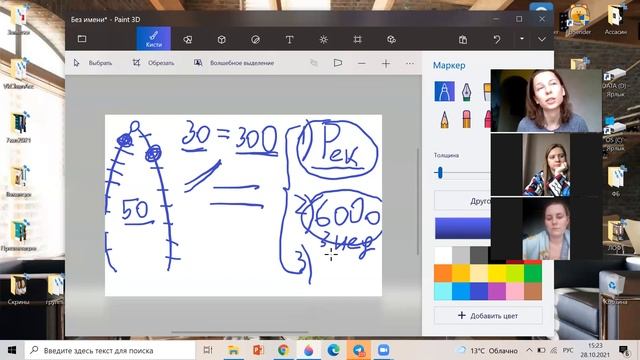 Без имени* - Paint 3D
Кисти
Выбрать
Обрезать
Волшебное выделение
Маркер
Толщина
Добавить цвет
30 = 300
1) Рек
50
2) 6000
3 нед
3)
Заметки
DATA (D) -
Ярлык
ФБ
Скрины
Введите здесь текст для поиска
13°C Облачно
РУС
15:23
28.10.2021